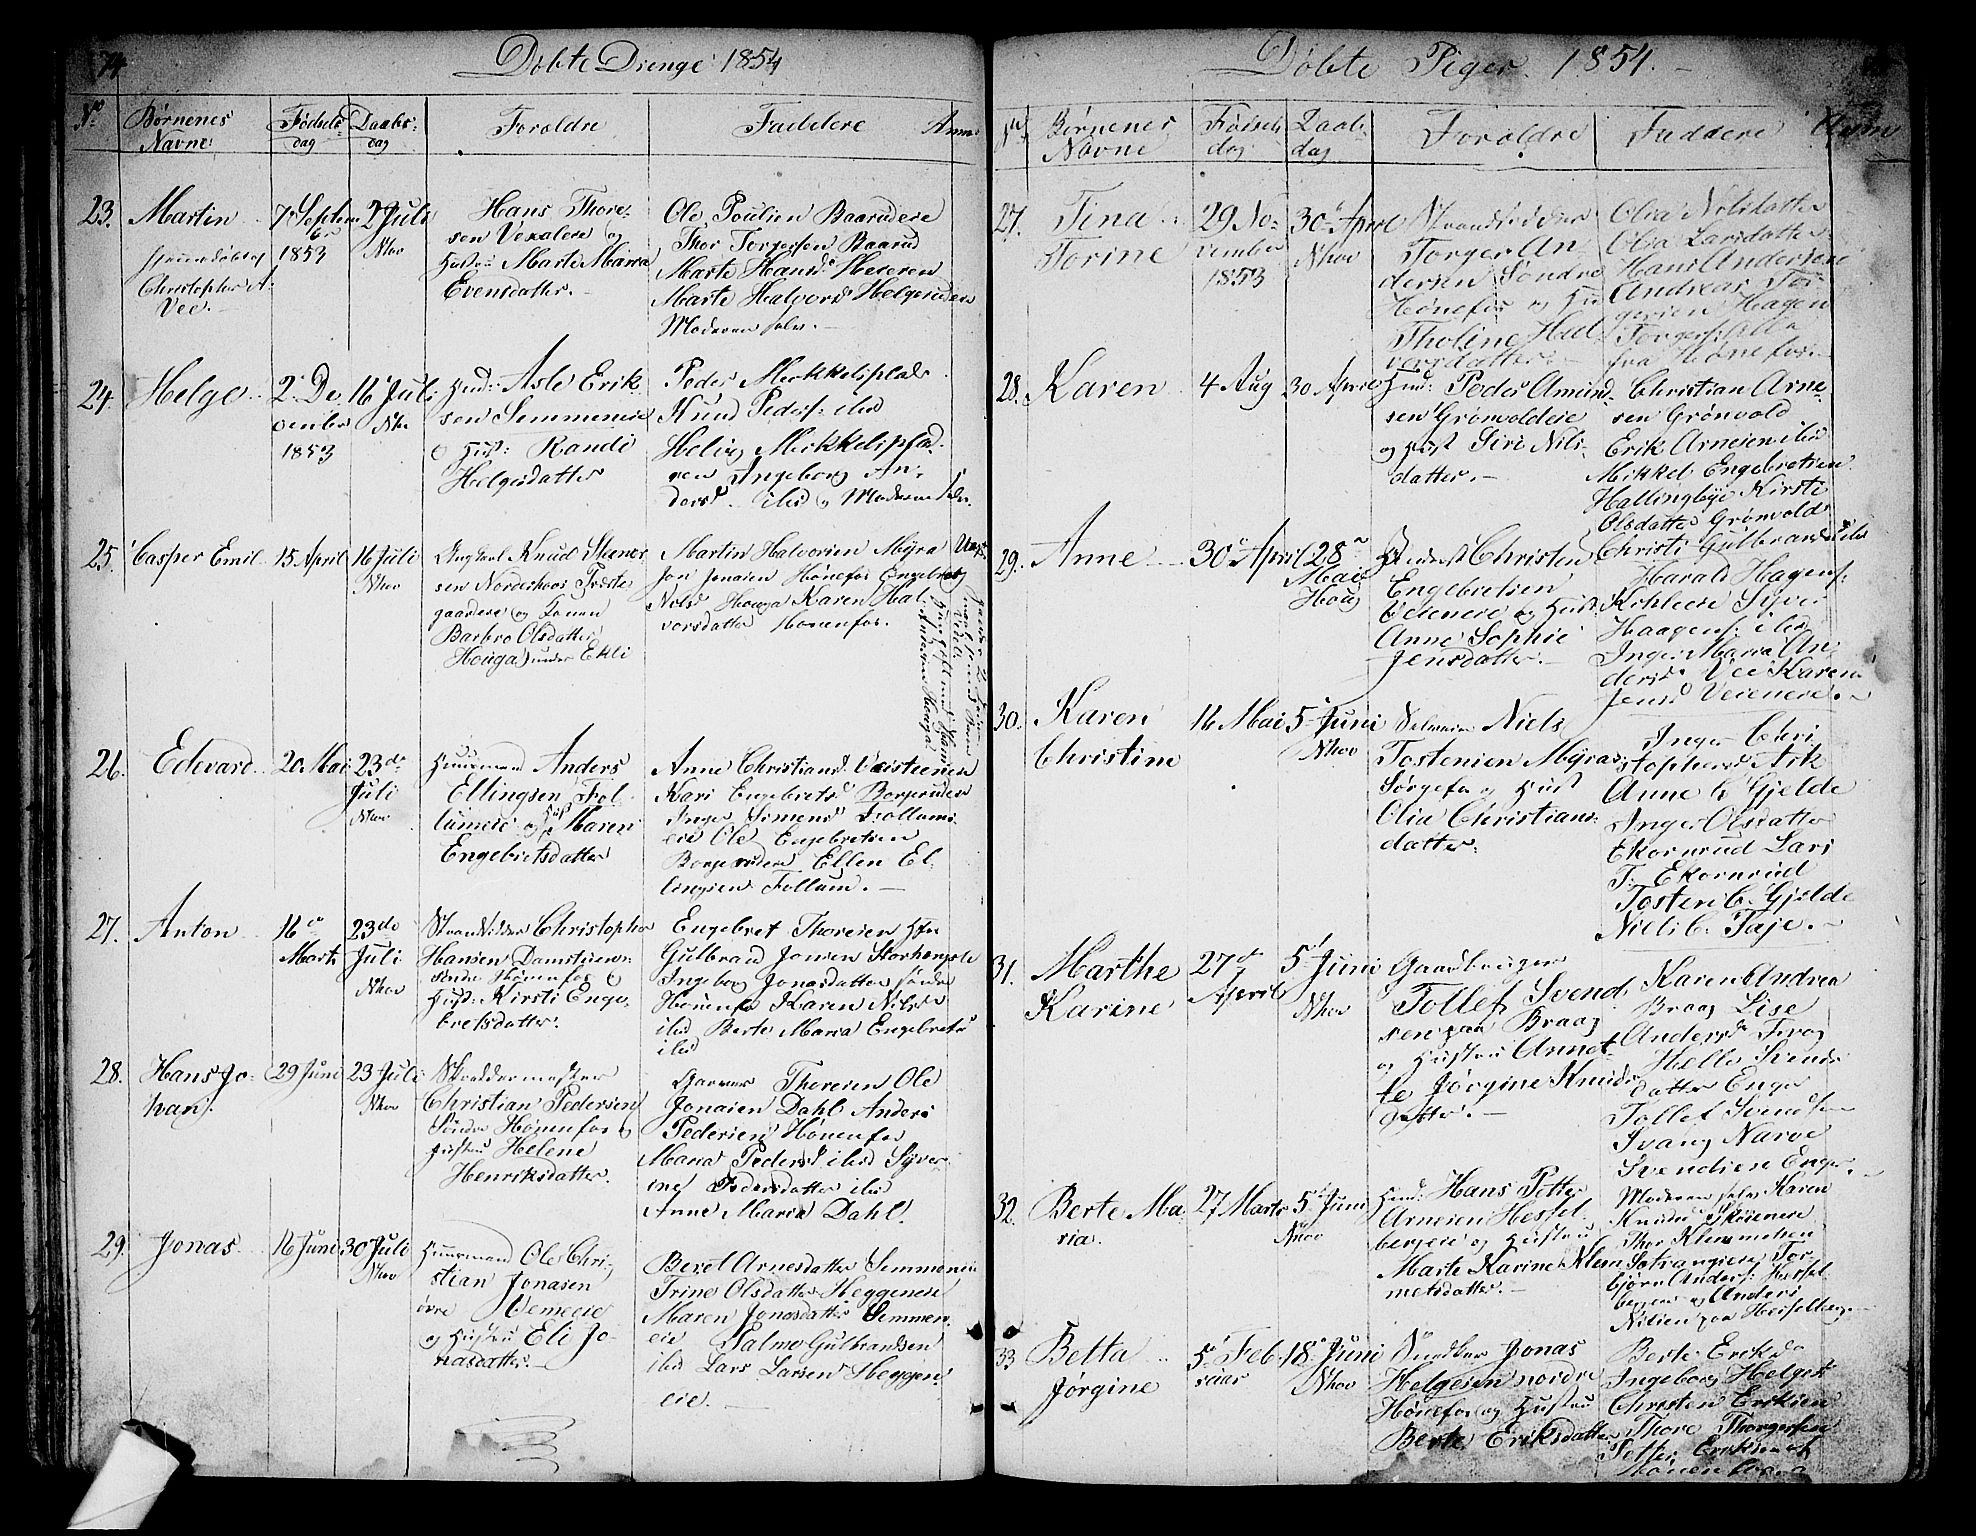 74
Döbte Drenge 1854
No
Børnenes Navne
Fødsels dag
Daabs: dag
Foroldre
Faddere
Anm
23. Martin
hjemmedøbt af
Christopher A:
Vee.
7 Septem
ber
1853
2 Juli
Nhov
Hans Thore-
sen Vexaleie og
Hustru Marte Maria
Evensdatter.
Ole Poulsen Baarudeie
Thor Torgersen Baarud
Marte Hansd Hereren
Marte Halvorsd Helgerudeie
Moderen selv.
24. Helge
2 De
cember
1853
16 Juli
Nhov
Huusm: Asle Erik-
sen Semmeneie
og Hust: Randi
Helgesdatter
Peder Mekkelsplads
Knud Peders: ibid
Helvig Mekkelsplad-
sen Ingeborg An-
dersd. ibid og Moderen selv
25. Casper Emil
15 April
16 Juli
Nhov
Ungkarl Knud Steners
sen Norderhovs Præste
gaardeie og Konen
Barbro Olsdatter
Houga under Ekli
Martin Halvorsen Myra
Jon Jonasen Hönefos Engebret
Nelsd Houga Karen Hal-
vorsdatter Hönenfos.
26. Edevard
20 Mai
23de
Juli
Nhov
Huusmand Anders
Ellingsen Fol-
lumeie og Hust Maren
Engebretsdatter
Anne Christiansd Veisteneie
Kari Engebretsd Borgerudeie
Inger Simensd Follums
eie Ole Engebretsen
Borgerudeie Ellen El-
lingsen Follum.
27. Anton
16
Marts
23de
Juli
Nhov
Strandsidder Christopher
Hansen Damstuen
søndre Hønenfos og
Hust: Kirsti Enge-
bretsdatter.
Engebret Thoresen Hfos
Gulbrand Jonsen Storhengsle
Ingeborg Jonasdatter søndre
Hönenfos Karen Nilsd
ibid Berte Maria Engebretsd
ibid
28. Hans Jo-
han.
29 Juni
23 Juli
Nhov
Skreddermester
Christian Pedersen
Søndre Hønenfos og
Hustru Helene
Henriksdatter.
Garver Thoresen Ole
Jonasen Dahl Anders
Pedersen Hönenfos
Maria Pedersd ibid Syver-
ine Pedersdatter ibid
Anne Maria Dahl.
29. Jonas
16 Juni
30 Juli
Nhov
Huusmand Ole Chri-
stian Jonasen
øvre Semeneie
og Hustru Eli Jo-
nasdatter.
Beret Arnesdatter Semmeneie
Trine Olsdatter Heggeneie
Maren Jonasdatter Semmen-
eie Salmo Gulbrandsen
ibid Lars Larsen Heggen-
eie.
Döbte Piger. 1854.
No
Børnenes Navne
Födsels dag
Daabs dag
Foroldre
Faddere
Anm
27. Tina
Torine
29 No-
vember
1853
30 April
Nhov
Strandsidder
Torger An
dersen Søndre
Hønefos og Hus
Tholine Hal-
vorsdatter.
Olia Nilsdatter
Olia Larsdatter
Hans Andersen
Andreas Tor
gersen Hagen
Torgers: alle
fra Hønefos.
28. Karen
4 Aug
30 April
Huusm: Peder Amund-
sen Grönvoldeie
og Hust Siri Nils-
datter.
Christian Arne-
sen Grönvold
Erik Arnesen ibid
Mikkel Engebretsen
Hallingbye Kirsti
Olsdatter Grönvold
29. Anne
30 April
28
Mai
Houg
Huusm Christen
Engebretsen
Veieneie og Hust
Anne Sophie
Jensdatter.
Christi Gulbrandsd ibid
Harald Hagens:
Kihleeie Syver
Haagens: ibid
Inger Maria An-
dersd Vee Karen
Jensd Veieneie.
30. Karen
Christine
16 Mai
5 Juni
Nhov
Selveier Niels
Tostensen Myra
Sørgefos og Hust
Olia Christians-
datter.
Inger Chri
stophersd Ask
Anne C Gjelde
Inger Olsdatter
Ekornrud Lars
T: Ekornrud
Tosten C. Gjelde
Niels C. Faje.
31. Marthe
Karine
27
April
5 Juni
Nhov
Gaardbruger
Tollef Svend
sen paa Braag
og Hustru Annet-
te Jörgine Knuds-
datter.
Karen Andrea
Braag Lise
Andersd Svang
Helle Svends
datter Enger
Tollef Svendsen
Svang Narve
Svendsen Enger
32. Berte Ma-
ria.
27 Marts
5 Juni
Nhov
Huusm: Hans Petter
Arnesen Hessel
bergeie og Hustru
Marte Karine Klem
metsdatter.
Moderen selv Karen
Knudsd Skiieneie
Thor Klemmetsen
Sætrangseie Tor
björn Anders: Hessel
bergeie og Anders
Nilsen paa Hesselberg
33 Betta
Jørgine
5 Feb-
ruar
18 Juni
Nhov
Snedker Jonas
Helgesen nordre
Hönefos og Hustru
Berte Eriksdatter
Berte Eriksd
Ingeborg Helgesd
Christen Eriksen
Thore Thorgersen
Petter Eriksen af
Hönenfos